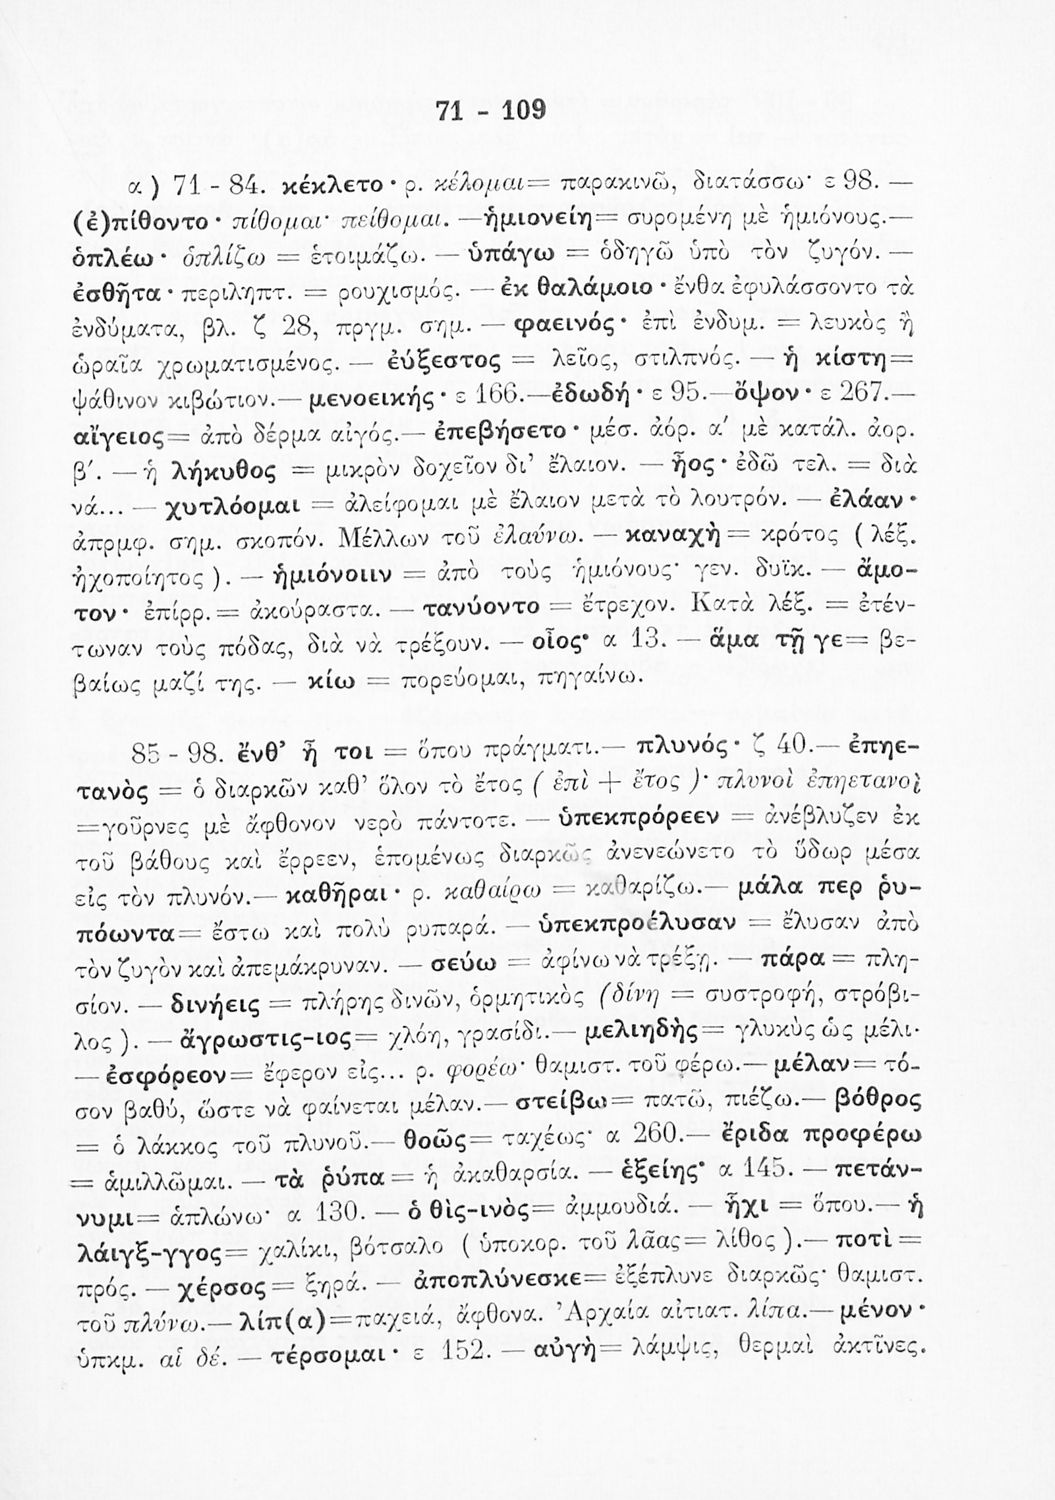 71 - 109
α) 71 - 84. κέκλετο· ρ. κέλομαι= παρακινῶ, διατάσσω· ε 98. —
(ἐ)πίθοντο· πίθομαι· πείθομαι. —ἡμιονείη= συρομένη μὲ ἡμιόνους.—
ὁπλέω· ὁπλίζω = ἑτοιμάζω. — ὑπάγω = ὁδηγῶ ὑπὸ τὸν ζυγόν. —
ἐσθῆτα· περιληπτ. = ρουχισμός. — ἐκ θαλάμοιο· ἔνθα ἐφυλάσσοντο τὰ
ἐνδύματα, βλ. ζ 28, πργμ. σημ. — φαεινός· ἐπὶ ἐνδυμ. = λευκὸς ἢ
ὡραῖα χρωματισμένος. — ἐύξεστος = λεῖος, στιλπνός. — ἡ κίστη=
ψάθινον κιβώτιον.— μενοεικής· ε 166.—ἐδωδή· ε 95.—ὄψον· ε 267.—
αἴγειος= ἀπὸ δέρμα αἰγός.— ἐπεβήσετο· μέσ. ἀόρ. α′ μὲ κατάλ. ἀορ.
β′. — ἡ λήκυθος = μικρὸν δοχεῖον δι᾽ ἔλαιον. — ἧος· ἐδῶ τελ. = διὰ
νά... — χυτλόομαι = ἀλείφομαι μὲ ἔλαιον μετὰ τὸ λουτρόν. — ἐλάαν·
ἀπρμφ. σημ. σκοπόν. Μέλλων τοῦ ἐλαύνω. — καναχὴ = κρότος (λέξ.
ἠχοποίητος). — ἡμιόνοιιν = ἀπὸ τοὺς ἡμιόνους· γεν. δυϊκ. — ἄμο-
τον· ἐπίρρ.= ἀκούραστα. — τανύοντο = ἔτρεχον. Κατὰ λέξ. = ἐτέν-
τωναν τοὺς πόδας, διὰ νὰ τρέξουν. — οἶος· α 13. — ἅμα τῇ γε= βε-
βαίως μαζί της. — κίω = πορεύομαι, πηγαίνω.
85 - 98. ἔνθ᾽ ἦ τοι = ὅπου πράγματι.— πλυνός· ζ 40.— ἐπηε-
τανὸς = ὁ διαρκῶν καθ᾽ ὅλον τὸ ἔτος ( ἐπὶ + ἔτος )· πλυνοὶ ἐπηετανοὶ
=γοῦρνες μὲ ἄφθονον νερὸ πάντοτε. — ὑπεκπρόρεεν = ἀνέβλυζεν ἐκ
τοῦ βάθους καὶ ἔρρεεν, ἑπομένως διαρκῶς ἀνενεώνετο τὸ ὕδωρ μέσα
εἰς τὸν πλυνόν.— καθῆραι· ρ. καθαίρω = καθαρίζω.— μάλα περ ῥυ-
πόωντα= ἔστω καὶ πολὺ ρυπαρά. — ὑπεκπροέλυσαν = ἔλυσαν ἀπὸ
τὸν ζυγὸν καὶ ἀπεμάκρυναν. — σεύω = ἀφίνω νὰ τρέξῃ. — πάρα = πλη-
σίον. — δινήεις = πλήρης δινῶν, ὁρμητικὸς (δίνη = συστροφή, στρόβι-
λος ). — ἄγρωστις-ιος= χλόη, γρασίδι.— μελιηδὴς= γλυκὺς ὡς μέλι·
— ἐσφόρεον= ἔφερον εἰς... ρ. φορέω· θαμιστ. τοῦ φέρω.— μέλαν= τό-
σον βαθύ, ὥστε νὰ φαίνεται μέλαν.— στείβω= πατῶ, πιέζω.— βόθρος
= ὁ λάκκος τοῦ πλυνοῦ.— θοῶς= ταχέως· α 260.— ἔριδα προφέρω
= ἁμιλλῶμαι. — τὰ ῥύπα= ἡ ἀκαθαρσία. — ἑξείης· α 145. — πετάν-
νυμι= ἁπλώνω· α 130. — ὁ θὶς-ινὸς= ἀμμουδιά. — ἧχι = ὅπου.— ἡ
λάιγξ-γγος= χαλίκι, βότσαλο ( ὑποκορ. τοῦ λᾶας= λίθος ).— ποτὶ =
πρός. — χέρσος = ξηρά. — ἀποπλύνεσκε= ἐξέπλυνε διαρκῶς· θαμιστ.
τοῦ πλύνω.— λίπ(α)=παχειά, ἄφθονα. Ἀρχαία αἰτιατ. λίπα.— μένον·
ὑπκμ. αἱ δέ. — τέρσομαι· ε 152. — αὐγὴ= λάμψις, θερμαὶ ἀκτῖνες.